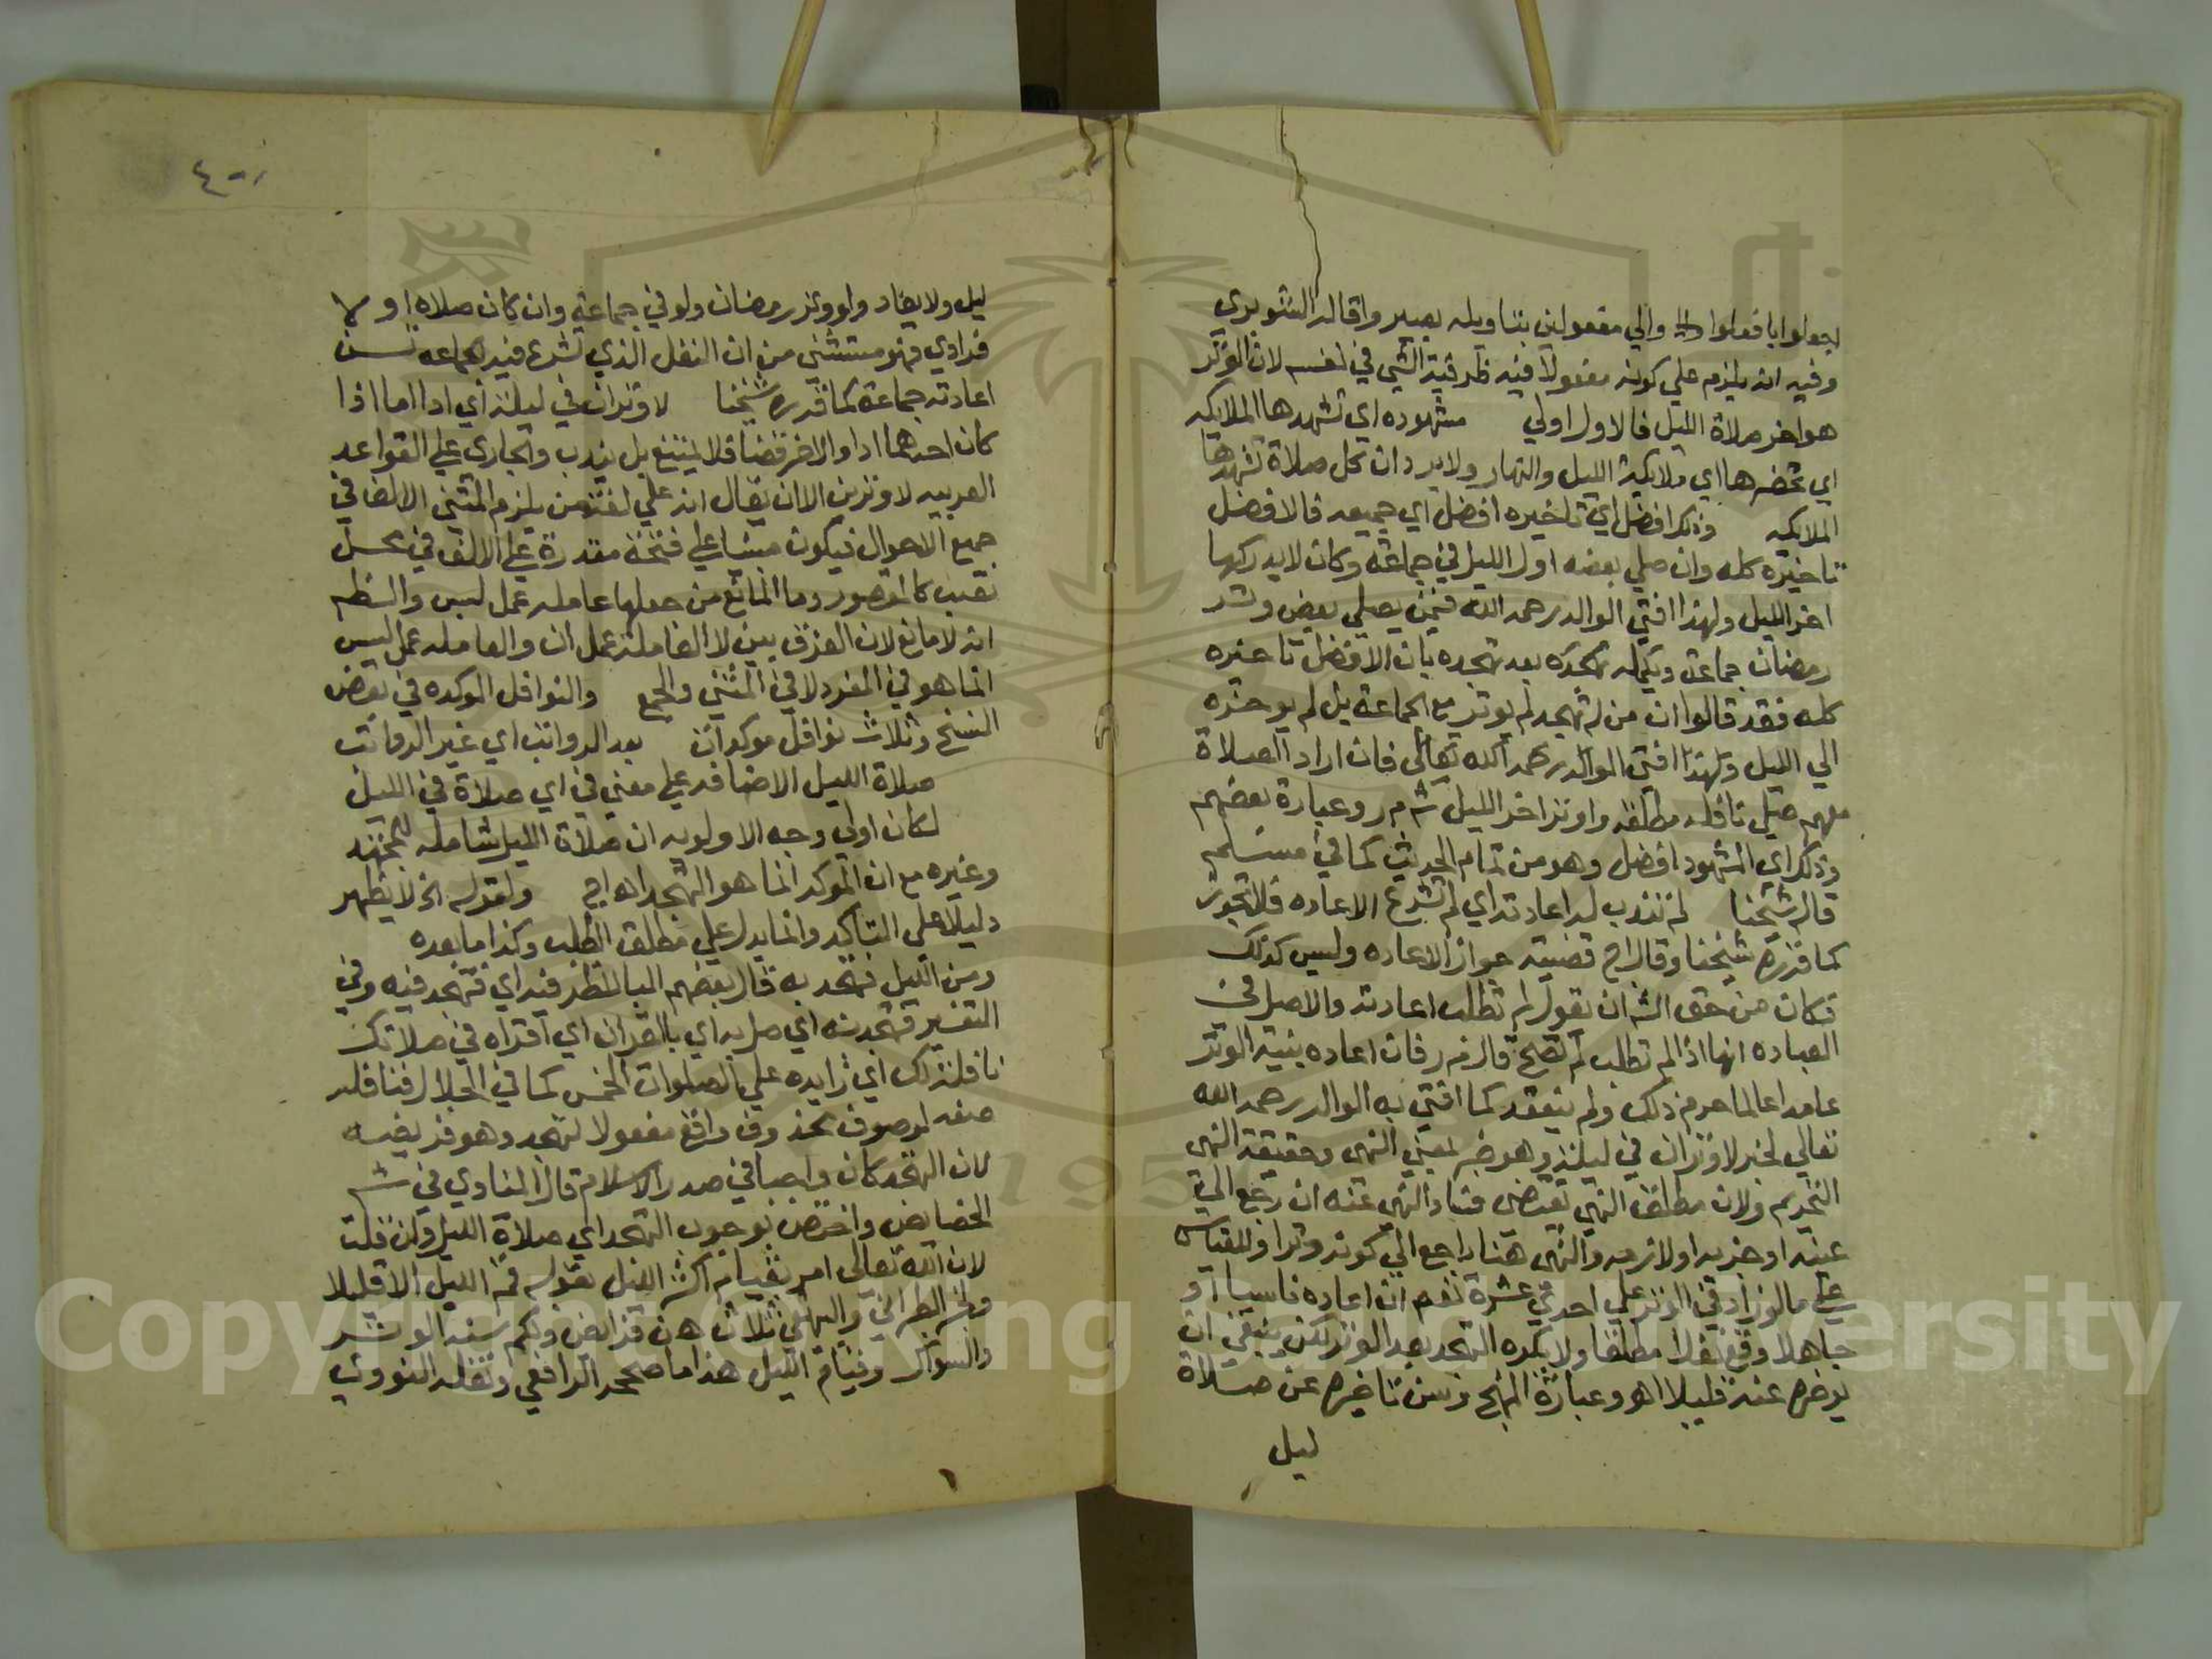 اجعلوا بافعلوا والي مفعولين بتاويله بصيروا قاله الشوبري
وفيه انه يلزم علي كونه مفعولا فيه ظرفية الشي في نفسه لان الوتر
هو اخر صلاة الليل فالاول اولي مشهوده اي تشهدها الملايكه
اي تحضرها اي ملايكة الليل والنهار ولا يرد ان كل صلاة تشهدها
الملايكه وذلك افضل اي تاخيره افضل اي جميعه فالافضل
تاخيره كله وان صلي بعضه اول الليل في جماعة وكان لا يدركها
اخر الليل ولهذا افتي الوالد رحمه الله فيمن يصلي بعض وتر
رمضان جماعة ويكمله بعد تهجده بان الافضل تاخيره
كله فقد قالوا ان من له تهجد لم يوتر مع الجماعة بل لم يوخره
الي الليل ولهذا افتي الوالد رحمه الله تعالي فان اراد الصلاة
معهم صلي نافله مطلقه واوتر اخر الليل ش م ر وعبارة بعضهم
وذلك اي المشهود افضل وهو من تمام الحديث كما في مسلم
قاله شيخنا لم تندب له اعادته اي لم تشرع الاعاده فلا تجوز
كما قرره شيخنا وقال ح قضيته جواز الاعاده وليس كذلك
فكان من حق الش ان يقول لم تطلب اعادته والاصل في
العباده انها اذا لم تطلب لم تصح قال م ر فان اعاده بنية الوتر
عامدا عالما حرم ذلك ولم ينعقد كما افتي به الوالد رحمه الله
تعالي لخبر لا وتران في ليلة وهو خبر بمعني النهي وحقيقة النهي
التحريم ولان مطلق النهي يقتضي فساد المنهي عنه ان رجع الي
عينه او جزيه او لازمه والنهي هنا راجع الي كونه وترا وللقياس
علي ما لو زاد في الوتر علي احدي عشرة نعم ان اعاده ناسيا او
جاهلا وقع نفلا مطلقا ولا يكره التهجد بعد الوتر لكن ينبغي ان
يوخره عنه قليلا اهـ وعبارة المنهج وسن تاخيره عن صلاة
ليل
ليل ولا يعاد ولو وتر رمضان ولو في جماعة وان كان صلاه اولا
فرادي فهو مستثني من ان النفل الذي تشرع فيه الجماعه تسن
اعادته جماعة كما قرره شيخنا لا وتران في ليلة اي ادا اما اذا
كان احدهما ادا والاخر قضا فلا يمتنع بل يندب والجاري علي القواعد
العربيه لا وترين الا ان يقال انه علي لغة من يلزم المثني الالف في
جميع الاحوال فيكون مبنيا علي فتحة مقدرة علي الالف في محل
نصب كالمقصور وما المانع من جعلها عامله عمل ليس والظم
انه لا مانع لان الفرق بين لا العاملة عمل ان والعامله عمل ليس
انما هو في المفرد لا في المثني والجمع والنوافل الموكده في بعض
النسخ وثلاث نوافل موكدات بعد الرواتب اي غير الرواتب
صلاة الليل الاضافه علي معني في اي صلاة في الليل
لكان اولي وجه الاولويه ان صلاة الليل شامله للتهجد
وغيره مع ان الموكد انما هو التهجد اهـ اج ولقوله الخ لا يظهر
دليلا علي التاكد وانما يدل علي مطلق الطلب وكذا ما بعده
ومن الليل فتهجد به قال بعضهم البا للظرفيه اي فتهجد فيه وفي
التفسير فتهجد به اي صل به اي بالقران اي اقراه في صلاتك
نافلة لك اي زايده علي الصلوات الخمس كما في الجلال فنافله
صفه لموصوف محذوف واقع مفعولا لتهجد وهو فريضه
لان التهجد كان واجبا في صدر الاسلام قال المناوي في ش
الخصايص واختص بوجوب التهجد اي صلاة الليل وان قلت
لان الله تعالي امره بقيام اكثر الليل بقوله قم الليل الا قليلا
ولخبر الطبراني والبيهقي ثلاث هن فرايض ولكم سنه الوتر
والسواك وقيام الليل هذا ما صححه الرافعي ونقله النووي